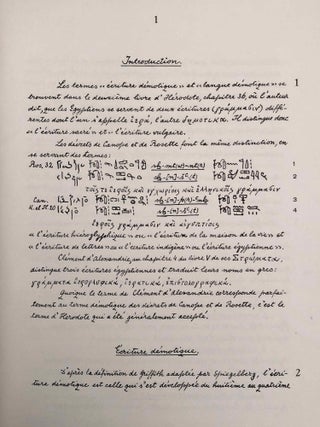 1
Introduction.
Les termes « écriture démotique » et « langue démotique » se 1
trouvent dans le deuxième livre d'Hérodote, chapitre 36, où l'auteur
dit, que les Égyptiens se servent de deux écritures (γράμμασιν) diffé-
rentes dont l'un s'appelle ἱερά, l'autre δημοτικά. Il distingue donc
« l'écriture sacrée » et « l'écriture vulgaire ».
Les décrets de Canope et de Rosette font la même distinction, en
se servant des termes:
Ros. 32 1
2
τοῖς τε ἱεροῖς καὶ ἐγχωρίοις καὶ ἑλληνικοῖς γράμμασιν
Can. 3
4
γράμμασιν καὶ αἰγυπτίοις
« l'écriture hiéroglyphique » ou « l'écriture de la maison de la vie » et
« l'écriture de lettres » ou « écriture indigène » ou « l'écriture égyptienne ».
Clément d'Alexandrie, au chapitre 4 du livre V de ses Στρώματα,
distingue trois écritures égyptiennes et traduit leurs noms en grec:
γράμματα ἱερογλυφικά, ἱερατικά, ἐπιστολογραφικά.
Quoique le terme de Clément d'Alexandrie corresponde parfai-
tement au terme démotique des décrets de Canope et de Rosette, c'est le
terme d'Hérodote qui a été généralement accepté.
Écriture démotique.
D'après la définition de Griffith adaptée par Spiegelberg, l'écri- 2
ture démotique est celle qui s'est développée du huitième au quatrième